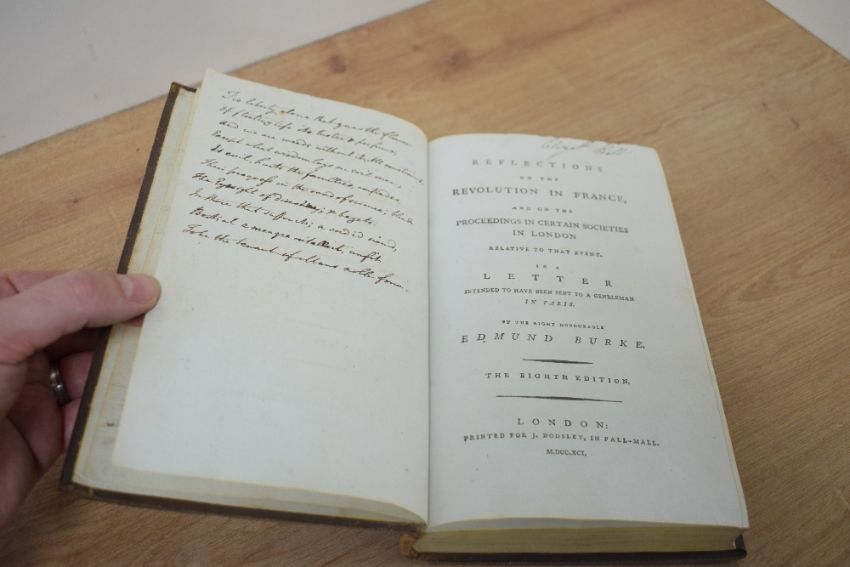 Tis liberty alone that gives the flower
Of fleeting life its luster & perfume,
And we are weeds without it. All constraint
Except what wisdom lays on evil men,
Is evil, hurts the faculties, impedes
Their progress in the road of science; blinds
The eyesight of discovery; & begets
In those that suffer it; a sordid mind,
Bestial a meagre intellect, unfit
To be the tenant of Mans noble form.
REFLECTIONS
ON THE
REVOLUTION IN FRANCE,
AND ON THE
PROCEEDINGS IN CERTAIN SOCIETIES
IN LONDON
RELATIVE TO THAT EVENT.
IN A
LETTER
INTENDED TO HAVE BEEN SENT TO A GENTLEMAN
IN PARIS.
BY THE RIGHT HONOURABLE
EDMUND BURKE.
THE EIGHTH EDITION.
LONDON:
PRINTED FOR J. DODSLEY, IN PALL-MALL.
M.DCC.XCI.